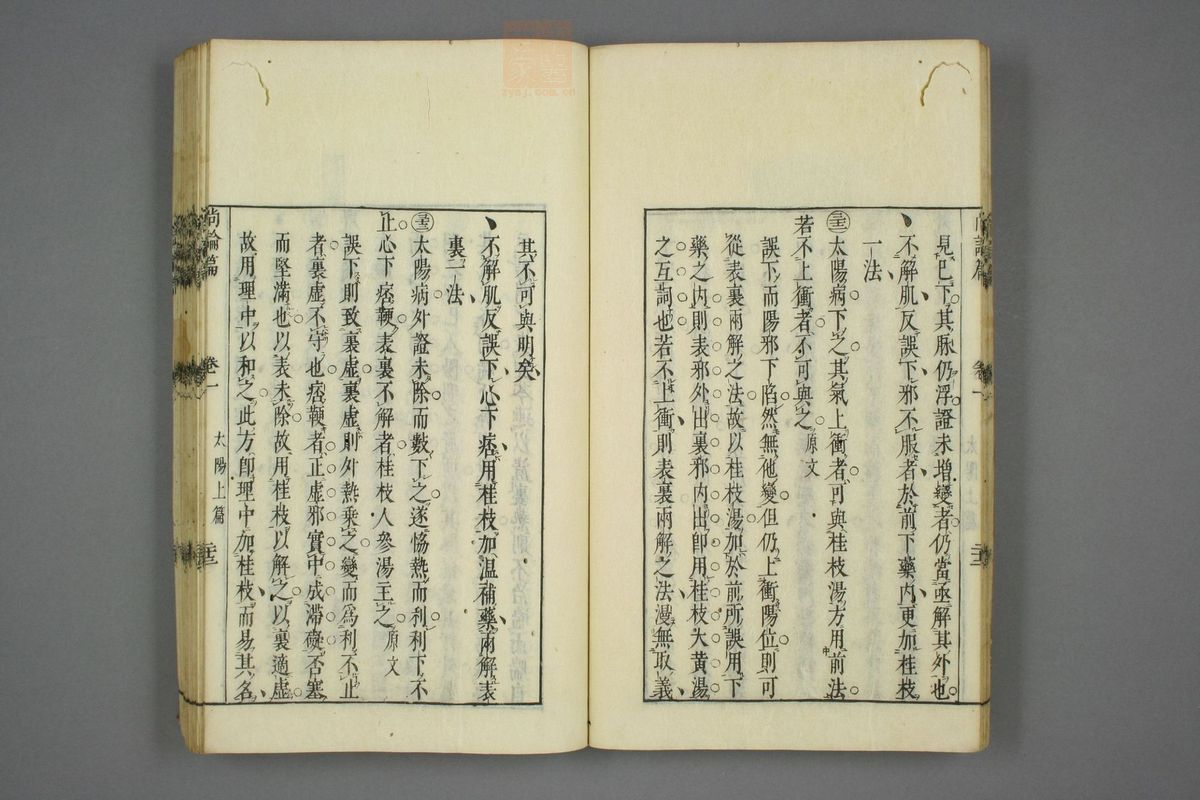 見已下其脉仍浮證未增變者仍當亟解其外也
不解肌反誤下邪不服者於前下藥內更加桂枝
一法
太陽病下之其氣上衝者可與桂枝湯方用前法
若不上衝者不可與之原文
誤下而陽邪下陷然無他變但仍上衝陽位則可
從表裏兩解之法故以桂枝湯加於前所誤用下
藥之內則表邪外出裏邪內出卽用桂枝大黃湯
之互詞也若不上衝則表裏兩解之法漫無取義
尚論篇
卷一
太陽上篇
其不可與明矣
不解肌反誤下心下痞用桂枝加溫補藥兩解表
裏一法
太陽病外證未除而數下之遂恊熱而利利下不
止心下痞鞕表裏不解者桂枝人參湯主之原文
誤下則致裏虛裏虛則外熱乘之變而爲利不止
者裏虛不守也痞鞕者正虛邪實中成滯礙否塞
而堅滿也以表未除故用桂枝以解之以裏適虛
故用理中以和之此方卽理中加桂枝而易其名
尚論篇
卷一
太陽上篇
zysj.com.cn